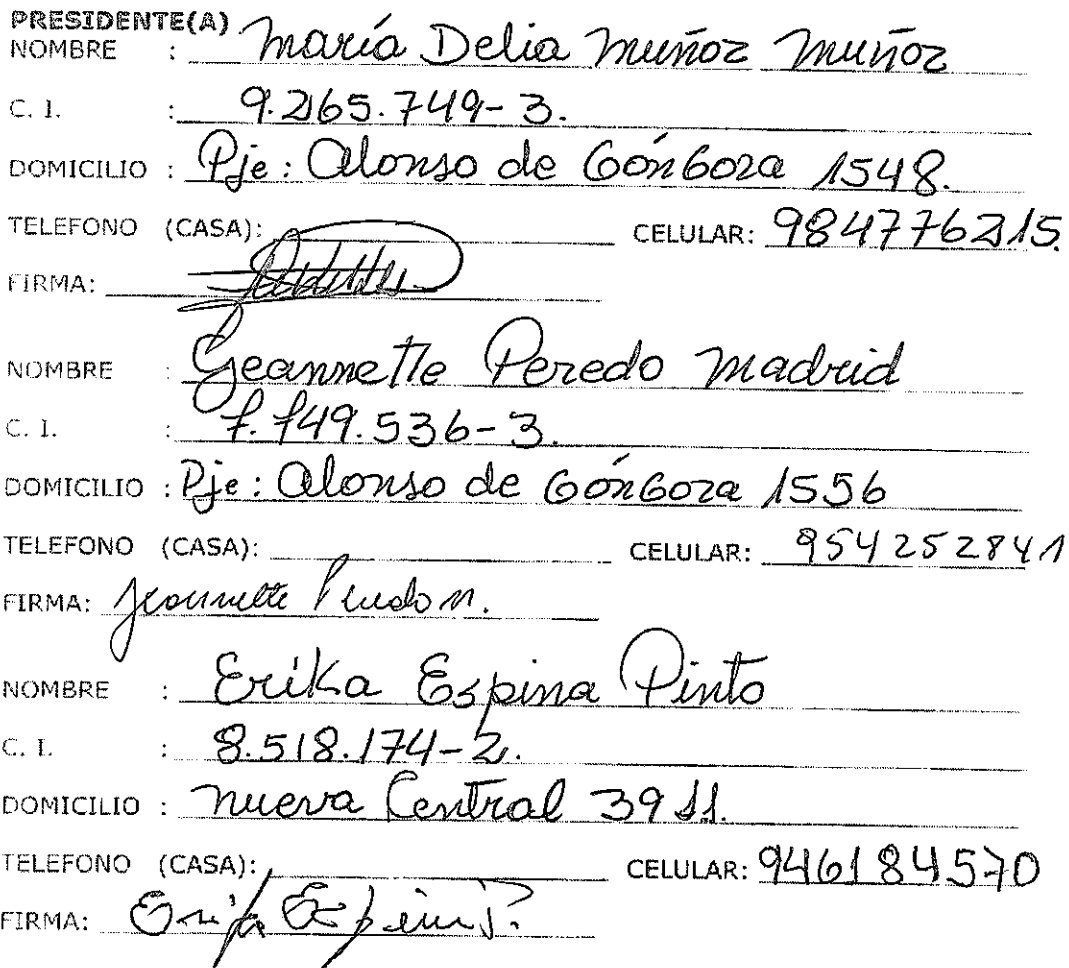 PRESIDENTE(A)
NOMBRE : María Delia Muñoz Muñoz
C. I. : 9.265.749-3.
DOMICILIO : Pje: Alonso de Góngora 1548.
TELEFONO (CASA): CELULAR: 984776215.
FIRMA:
NOMBRE : Jeannette Peredo Madrid
C. I. : 7.749.536-3.
DOMICILIO : Pje: Alonso de Góngora 1556
TELEFONO (CASA): CELULAR: 954252841
FIRMA: Jeannette Peredo M.
NOMBRE : Erika Espina Pinto
C. I. : 8.518.174-2.
DOMICILIO : Nueva Central 3911.
TELEFONO (CASA): CELULAR: 946184570
FIRMA: Erika Espina P.